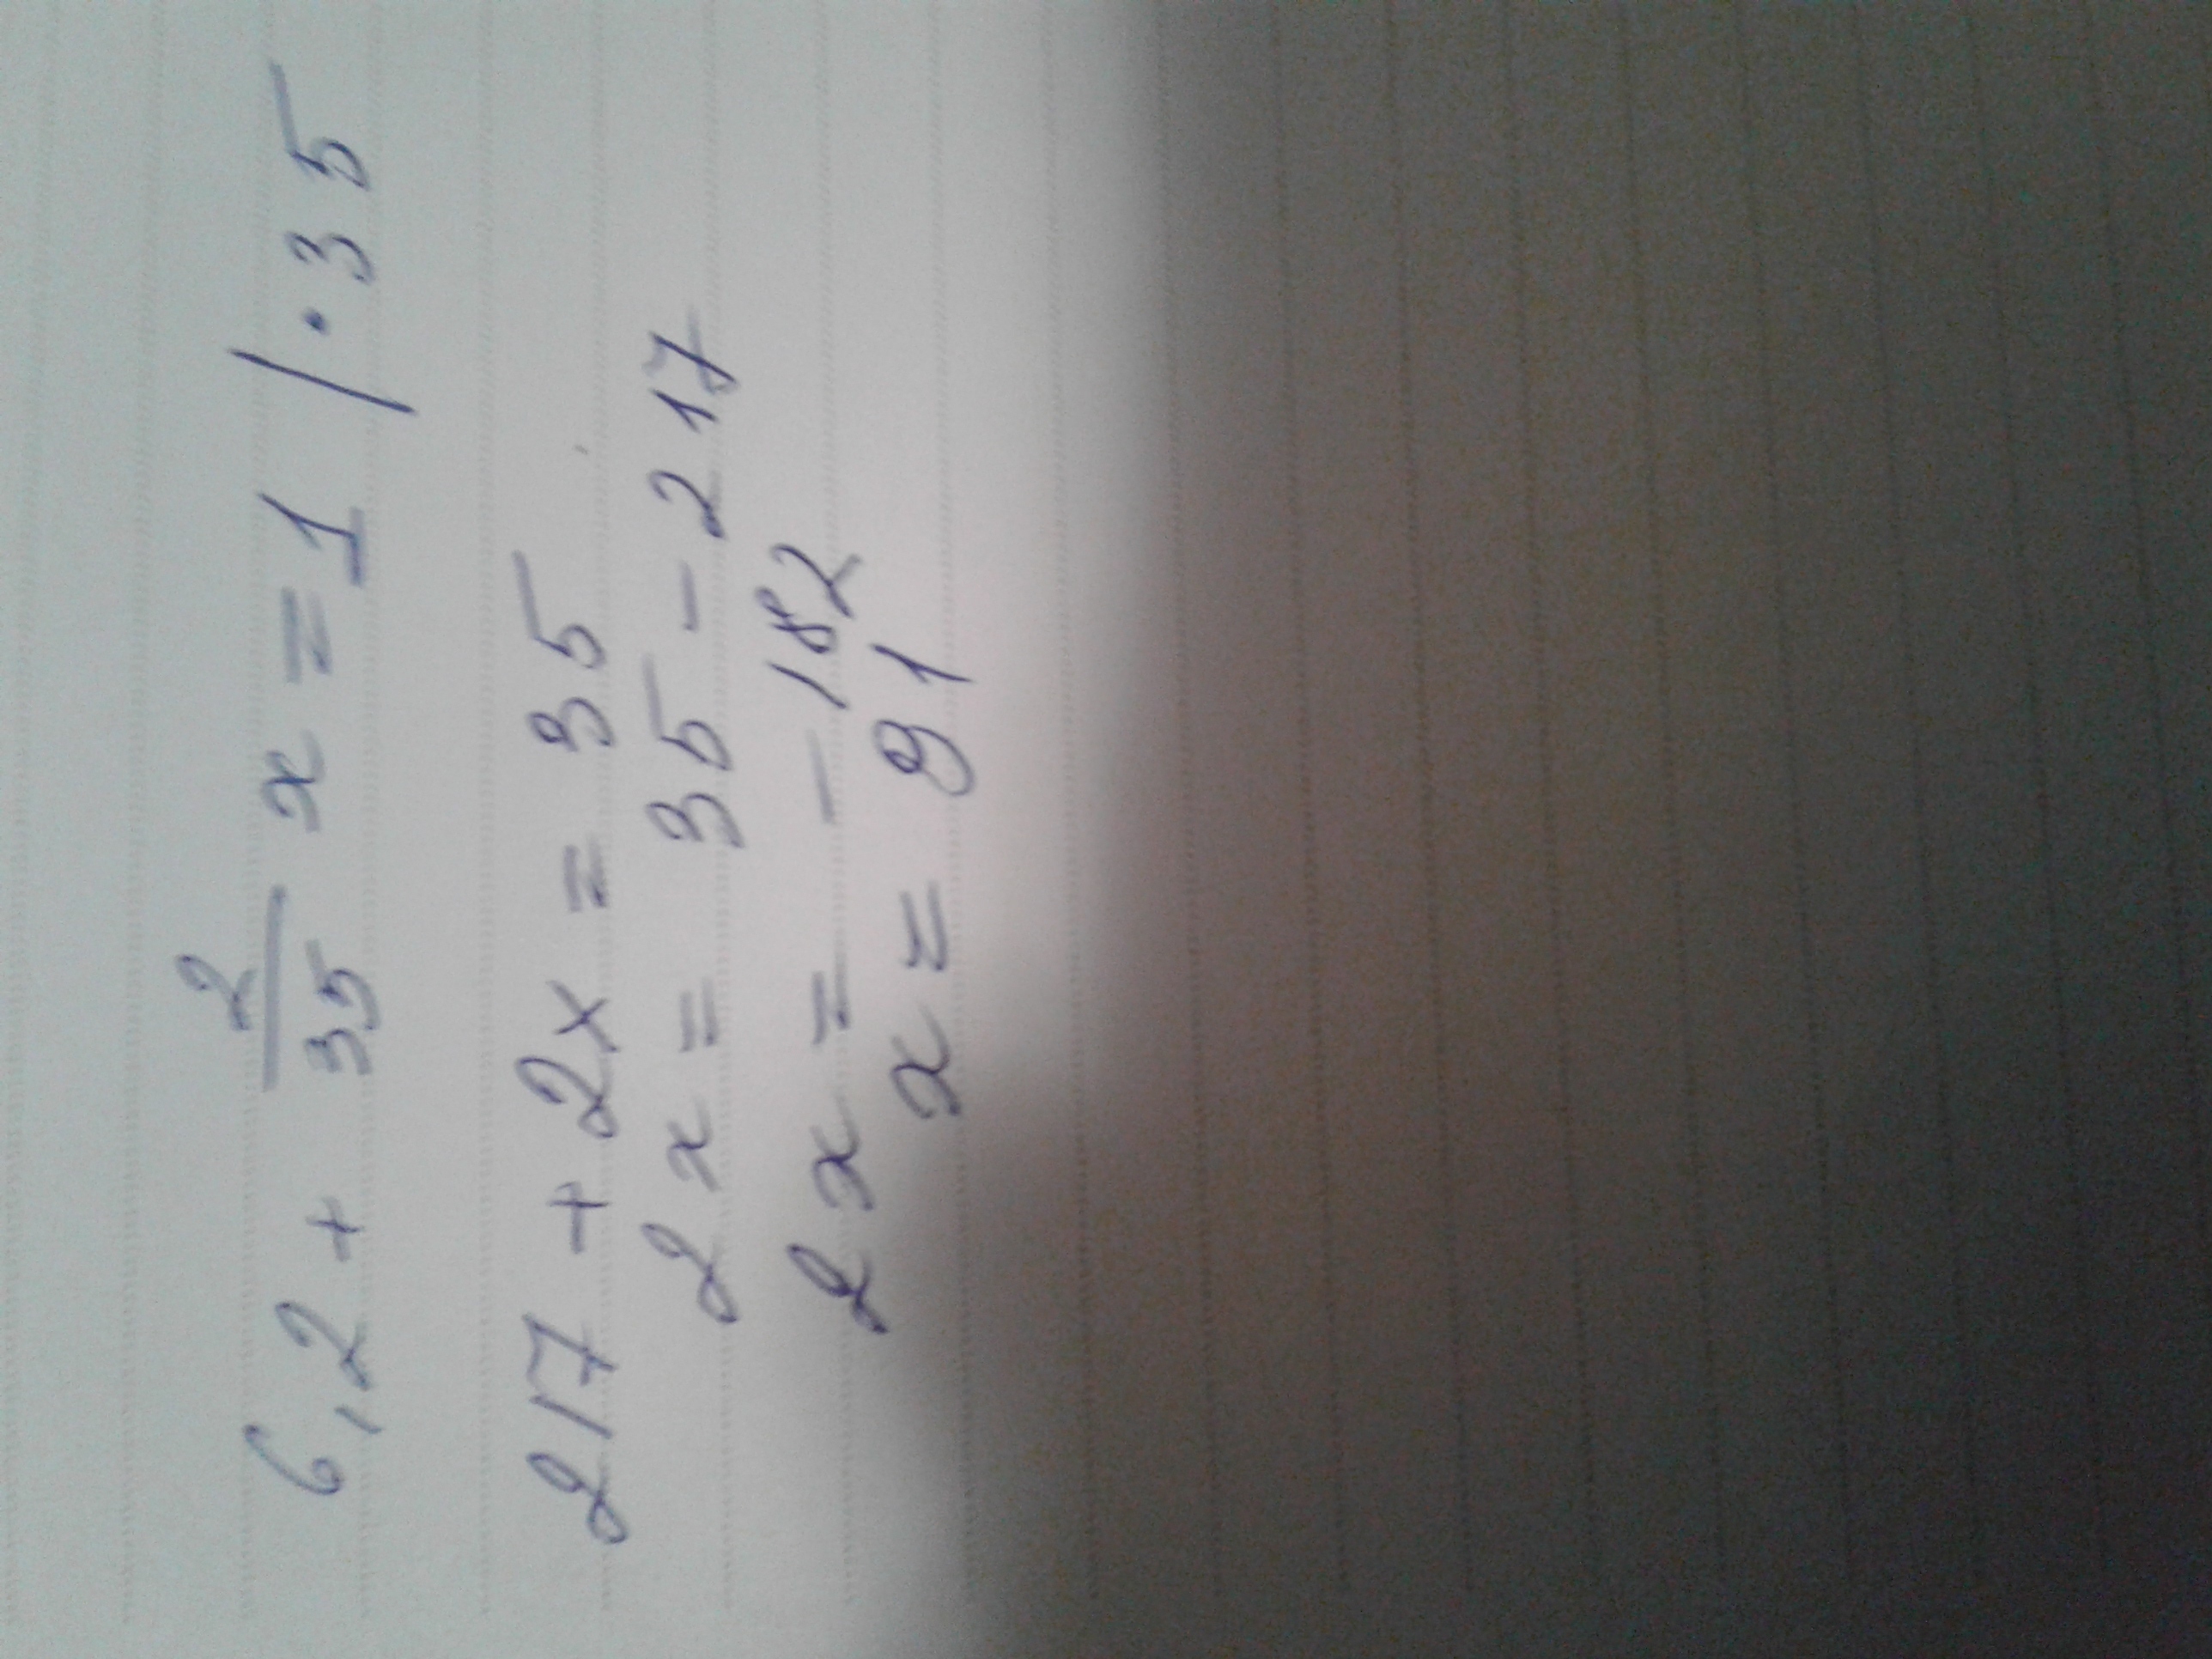 6,2 + 2/35 x = 1 / · 35
217 + 2x = 35
2x = 35 - 217
2x = - 182
x = 91